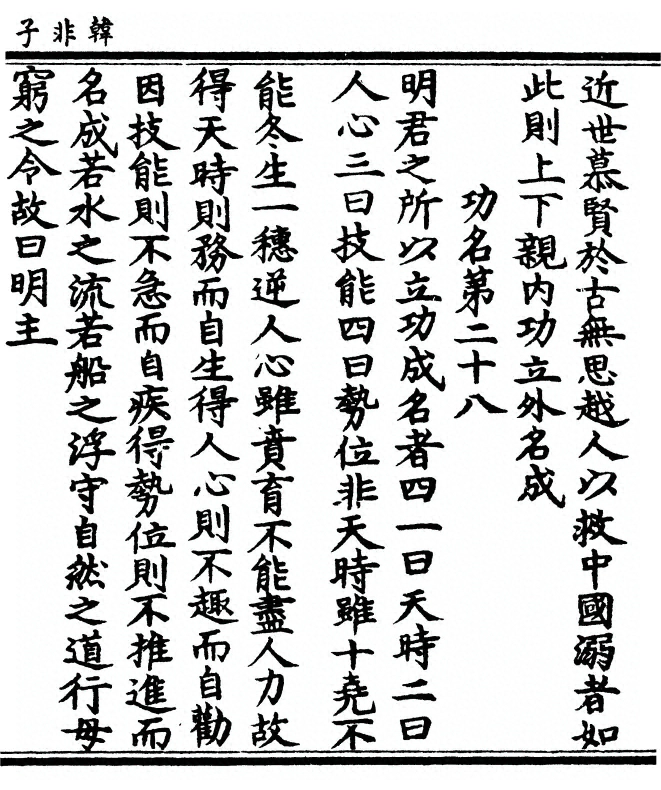 韓非子
近世慕賢於古無思越人以救中國溺者如
此則上下親內功立外名成
功名第二十八
明君之所以立功成名者四一曰天時二曰
人心三曰技能四曰勢位非天時雖十堯不
能冬生一穗逆人心雖賁育不能盡人力故
得天時則務而自生得人心則不趣而自勸
因技能則不急而自疾得勢位則不推進而
名成若水之流若船之浮守自然之道行毋
窮之令故曰明主